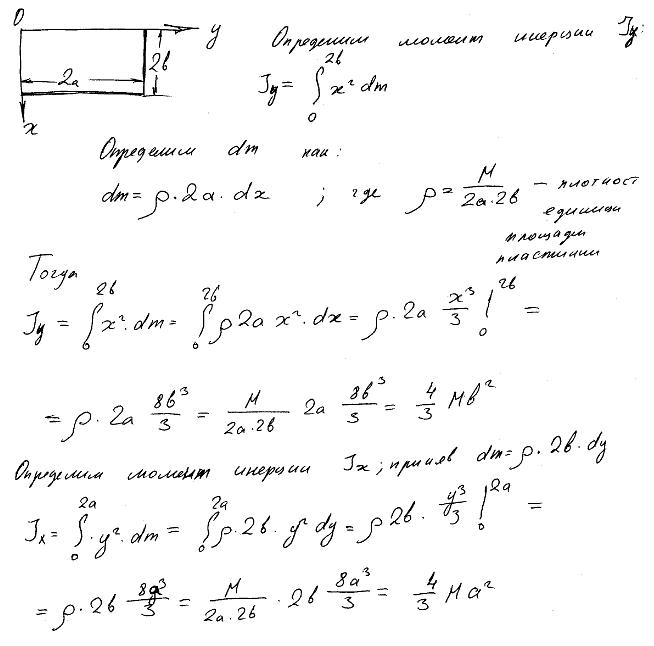 O
y
2b
2a
x
Определим момент инерции Jy:
Jy = ∫₀²ᵇ x² dm
Определим dm как:
dm = ρ·2a·dx ; где ρ = M/(2a·2b) — плотност
единици
площади
пластинки
Тогда
Jy = ∫₀²ᵇ x²·dm = ∫₀²ᵇ ρ 2a x²·dx = ρ·2a x³/3 |₀²ᵇ =
= ρ·2a 8b³/3 = M/(2a·2b) 2a 8b³/3 = 4/3 Mb²
Определим момент инерции Jx; приняв dm = ρ·2b·dy
Jx = ∫₀²ᵃ ·y²·dm = ∫₀²ᵃ ρ·2b·y² dy = ρ 2b · y³/3 |₀²ᵃ =
= ρ·2b 8a³/3 = M/(2a·2b) · 2b 8a³/3 = 4/3 Ma²